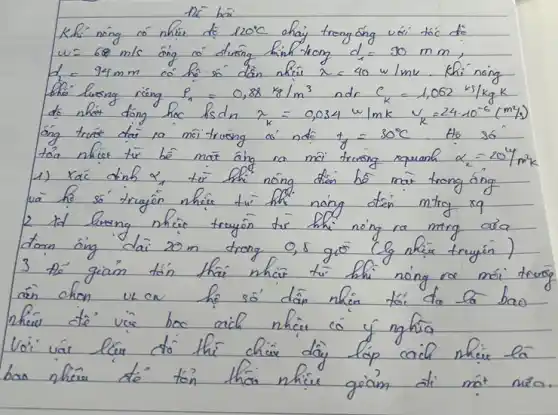 Đề bài
Khí nóng có nhiệt độ 120°C chảy trong ống với tốc độ
w = 68 m/s ống có đường kính trong d₁ = 90 mm,
d₂ = 94mm có hệ số dẫn nhiệt λ = 40 w/mk. Khí nóng
khối lượng riêng ρ = 0,88 kg/m³ ndr C_k = 1,062 kJ/kgk
độ nhớt động học hsdn λ_k = 0,034 w/mk ν_k = 24.10⁻⁶ (m²/s)
ống trước đặt ra môi trường có nđộ t_f = 30°C Hệ số
tỏa nhiệt từ bề mặt ống ra môi trường xquanh α₂ = 20 w/m²k
1) Xác định α₁ từ khí nóng đến bề mặt trong ống
và hệ số truyền nhiệt từ khí nóng đến mtrg xq
2 Xđ lượng nhiệt truyền từ khí nóng ra mtrg của
đoạn ống dài 20m trong 0,8 giờ (lg nhiệt truyền)
3 Để giảm tổn thất nhiệt từ khí nóng ra môi trường
cần chọn VL CN hệ số dẫn nhiệt tối đa là bao
nhiêu để việc bọc cách nhiệt có ý nghĩa
Với vật liệu đó thì chiều dày lớp cách nhiệt là
bao nhiêu để tổn thất nhiệt giảm đi một nửa.